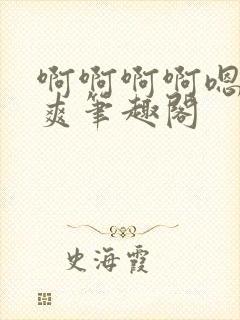 啊啊啊啊嗯
爽笔趣阁
史海霞